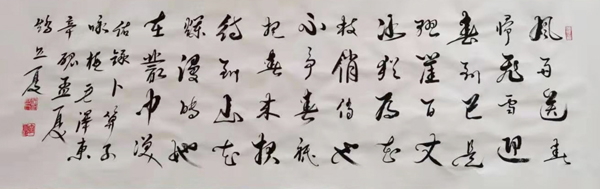 风雨送春
归飞雪迎
春到已是
悬崖百丈
冰犹有花
枝俏俏也
不争春只
把春来报
待到山花
烂漫时她
在叢中笑
录卜算子
咏梅毛泽东
辛孟夏
立夏